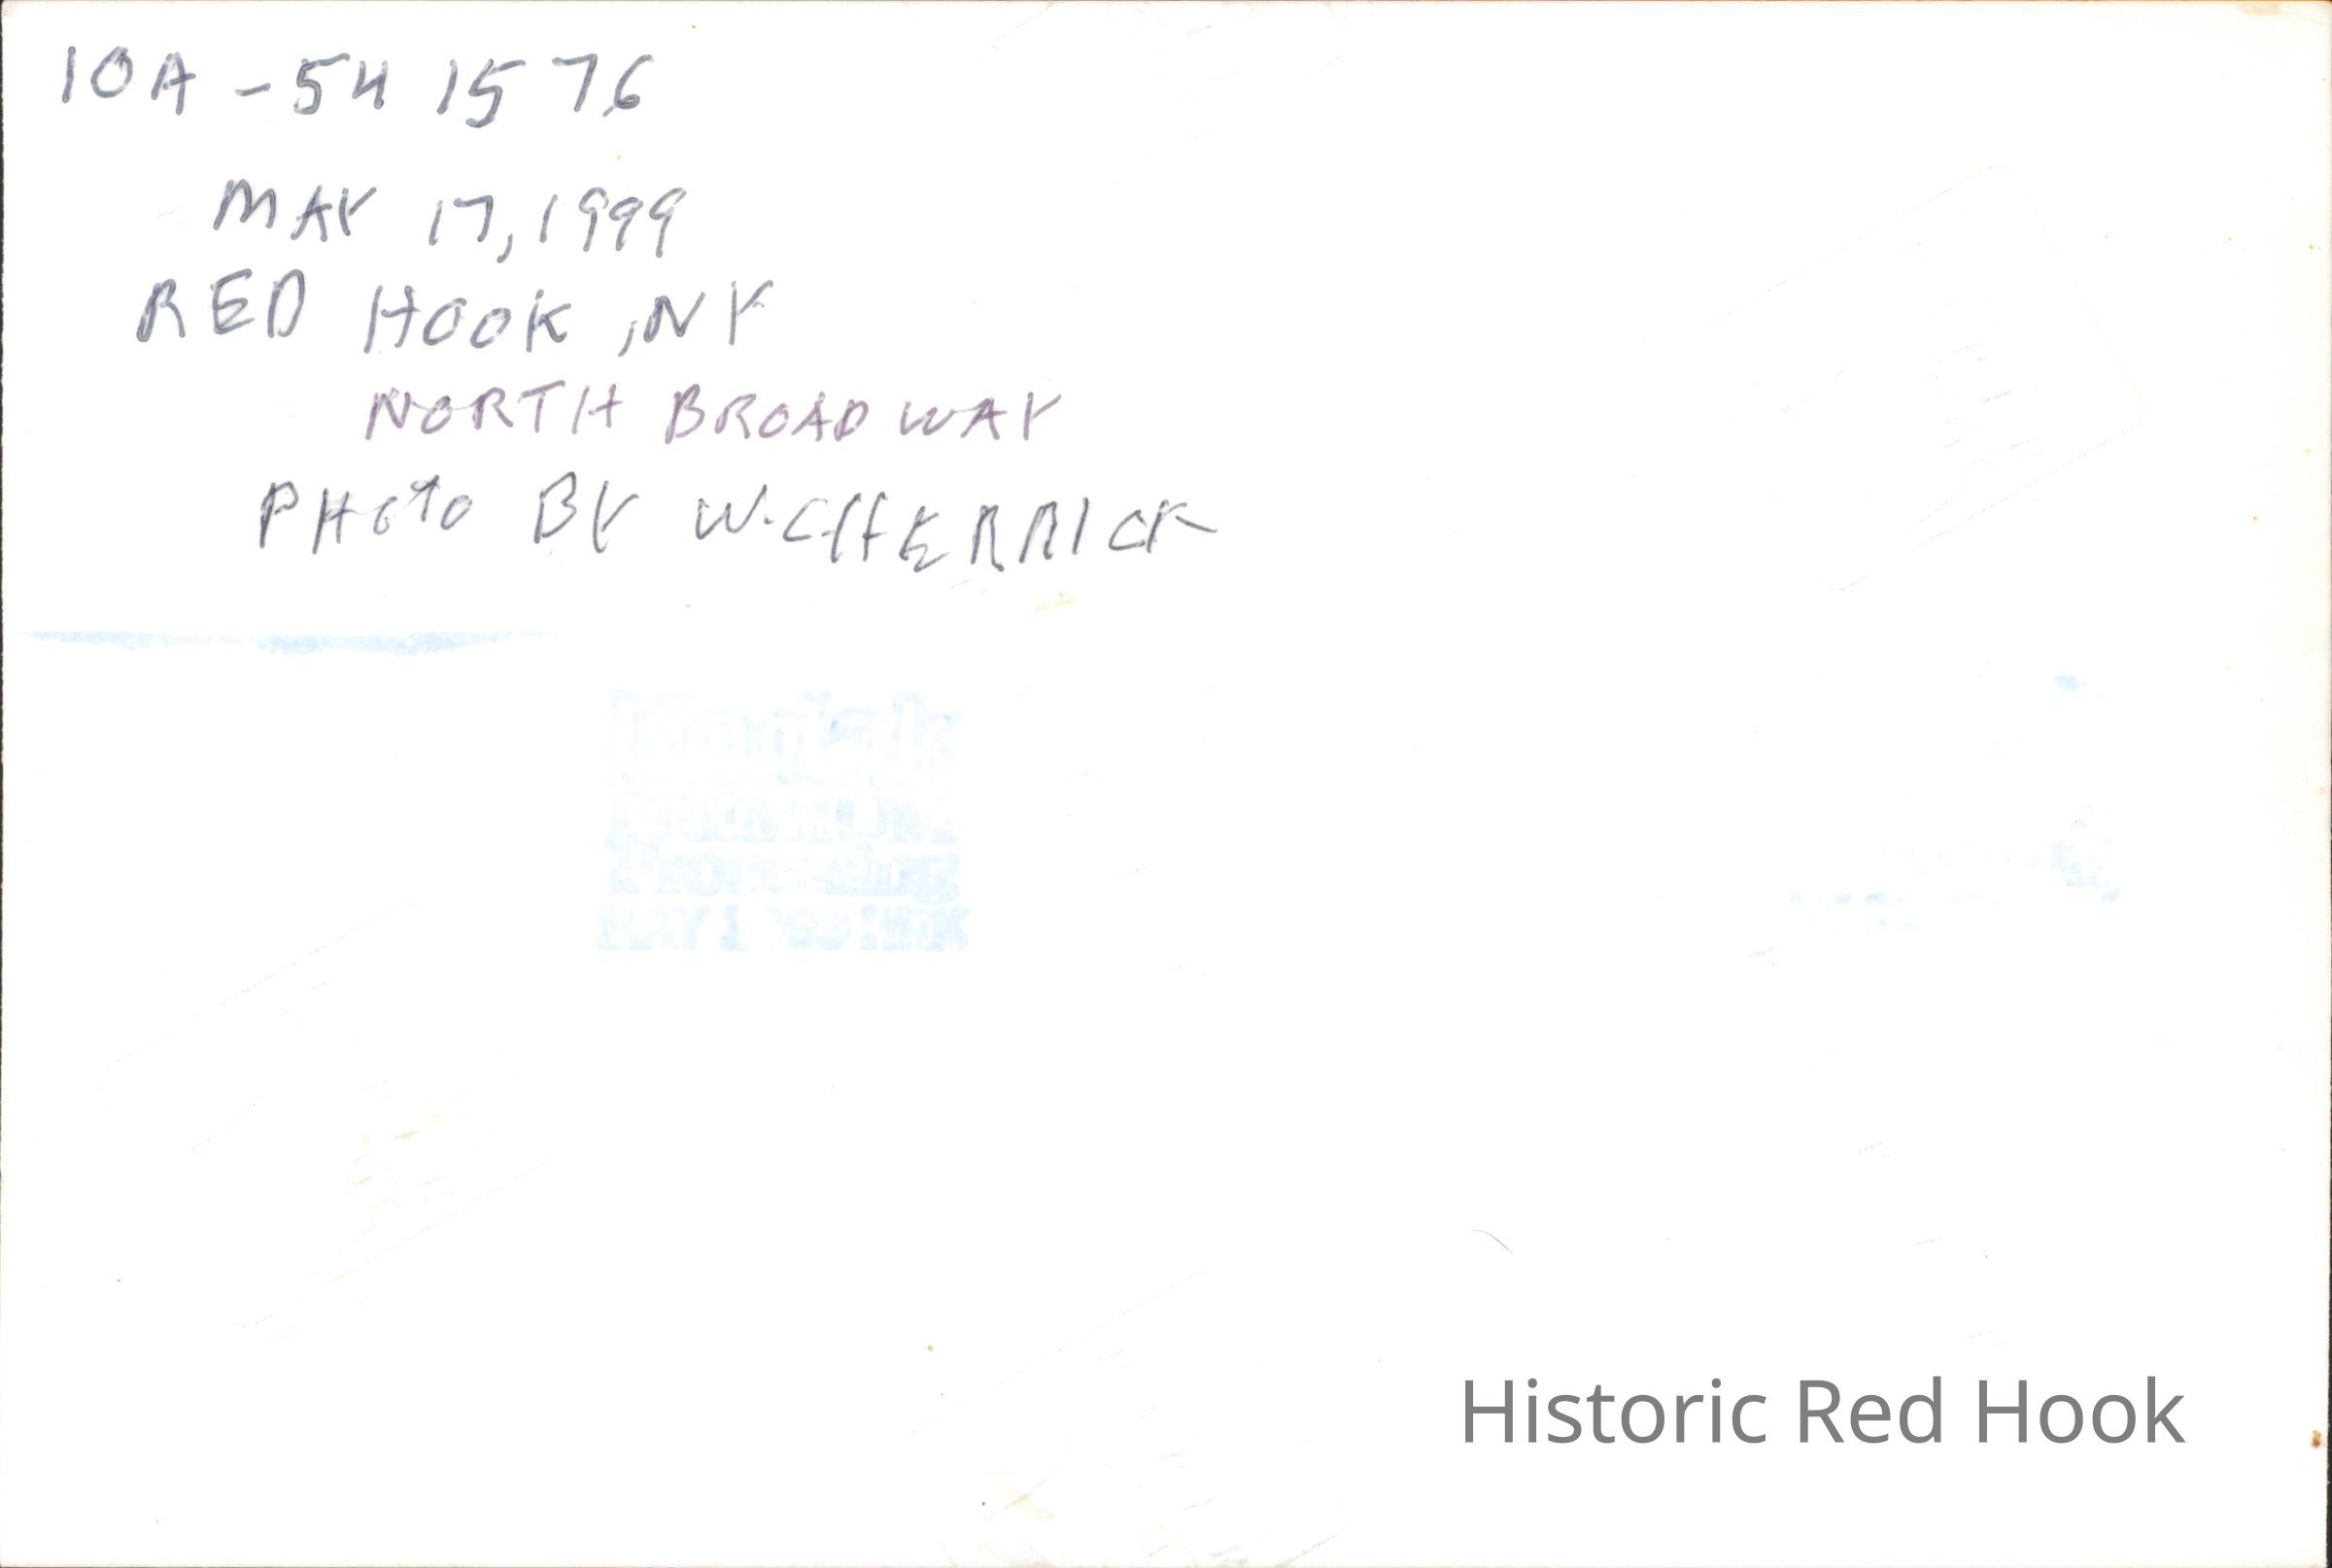 10A - 54 15 76
MAY 17, 1999
RED HOOK, NY
NORTH BROADWAY
PHOTO BY W. C HERRICK
Historic Red Hook